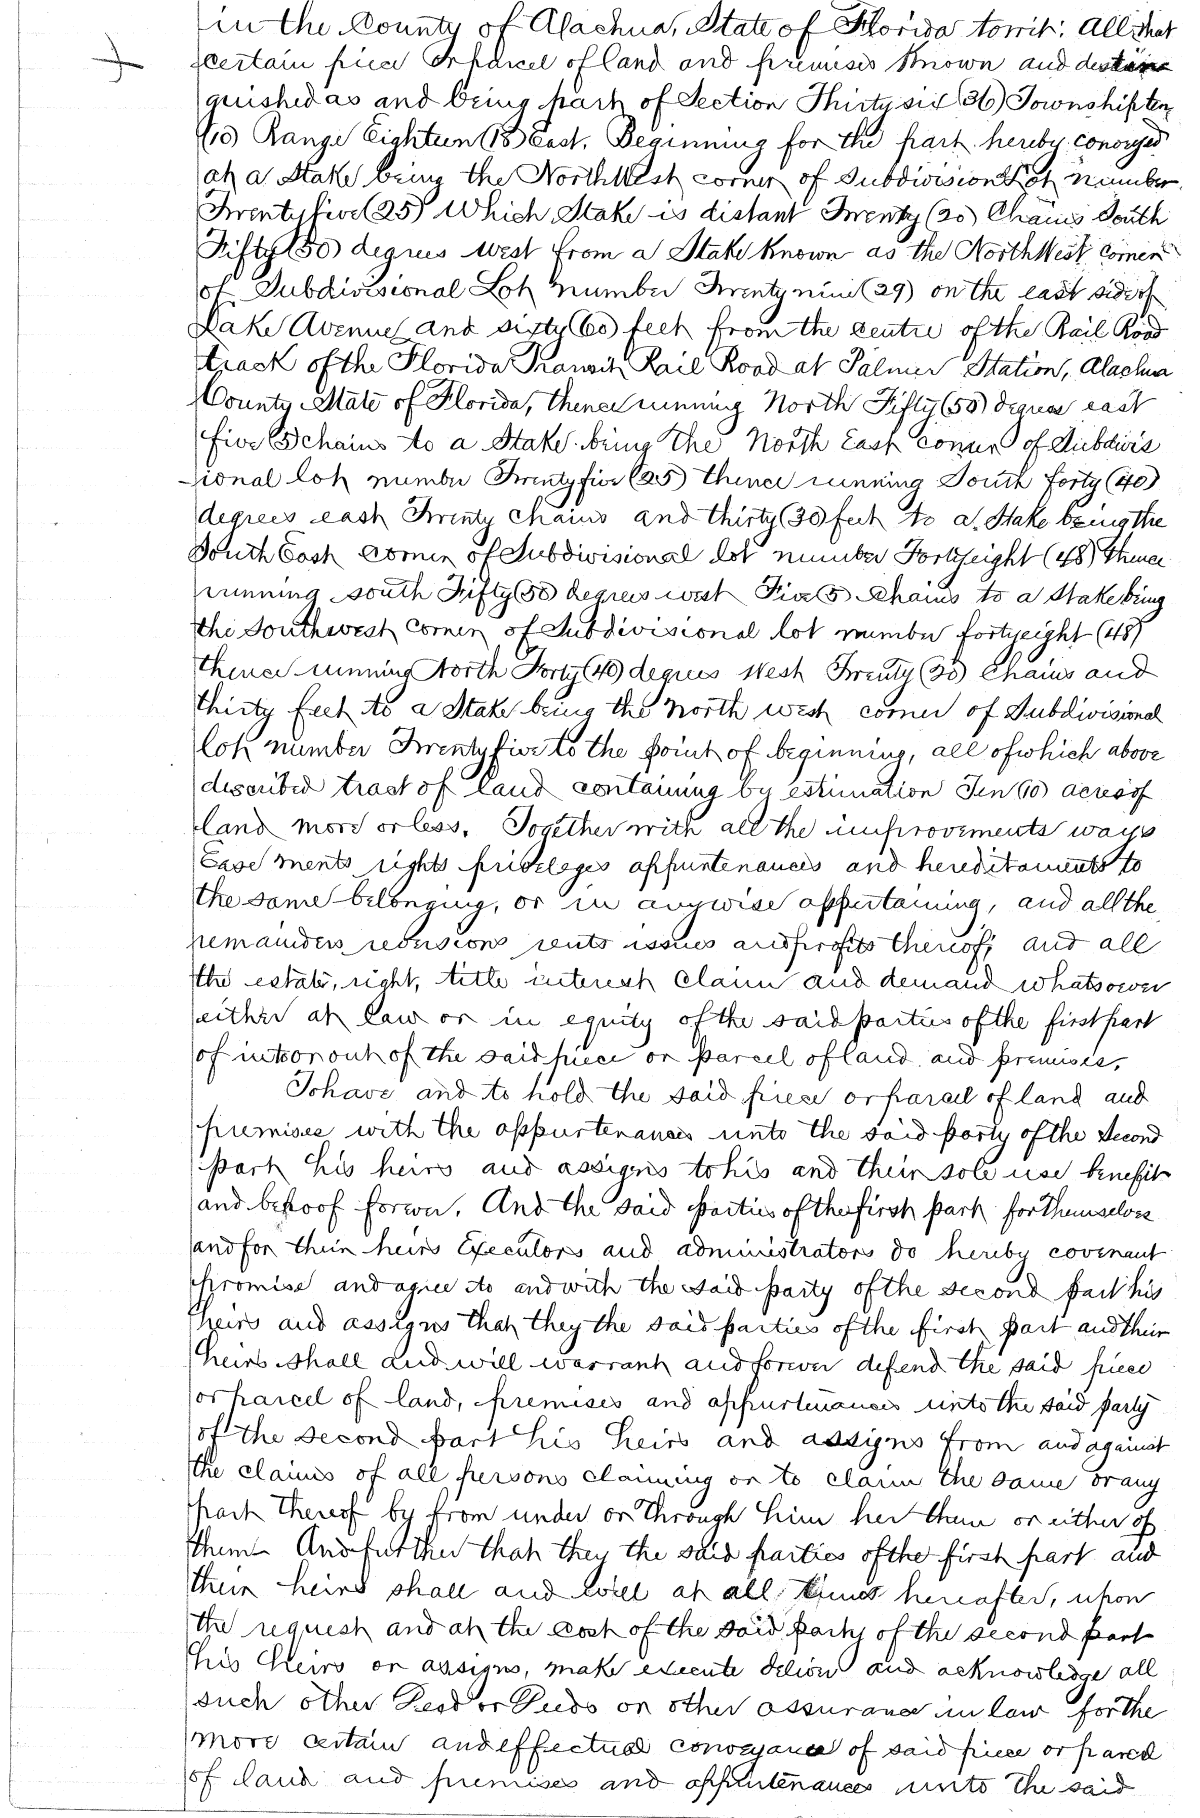 in the County of Alachua, State of Florida towit: All that
certain piece or parcel of land and premises known and distin
guished as and being part of Section Thirty six (36) Township ten
(10) Range Eighteen (18) East. Beginning for the part hereby conveyed
at a Stake being the NorthWest corner of Subdivisional Lot number
Twenty five (25) Which Stake is distant Twenty (20) Chains South
Fifty (50) degrees west from a Stake known as the NorthWest corner
of Subdivisional Lot number Twenty nine (29) on the east side of
Lake Avenue and sixty (60) feet from the centre of the Rail Road
track of the Florida Transit Rail Road at Palmer Station, Alachua
County State of Florida, thence running North Fifty (50) degrees east
five (5) chains to a Stake being the North East corner of Subdivis
-ional lot number Twenty five (25) thence running South forty (40)
degrees east Twenty chains and thirty (30) feet to a Stake being the
South East corner of Subdivisional lot number Forty eight (48) thence
running south Fifty (50) degrees west Five (5) chains to a Stake being
the Southwest corner of Subdivisional lot number forty eight (48)
thence running North Forty (40) degrees West Twenty (20) Chains and
thirty feet to a Stake being the north west corner of Subdivisional
lot number Twenty five to the point of beginning, all of which above
described tract of land containing by estimation Ten (10) acres of
land more or less. Together with all the improvements ways
Ease ments rights privileges appurtenances and hereditaments to
the same belonging, or in anywise appertaining, and all the
remainders revisions rents issues and profits thereof; and all
the estate, right, title interest claim and demand whatsoever
either at law or in equity of the said parties of the first part
of in to or out of the said piece or parcel of land and premises,
To have and to hold the said piece or parcel of land and
premises with the appurtenances unto the said party of the Second
part his heirs and assigns to his and their sole use benefit
and behoof forever. And the said parties of the first part for Themselves
and for their heirs Executors and administrators do hereby covenant
promise and agree to and with the said party of the second part his
heirs and assigns that they the said parties of the first part and their
heirs shall and will warrant and forever defend the said piece
or parcel of land, premises and appurtenances unto the said party
of the second part his heirs and assigns from and against
the claims of all persons claiming or to claim the same or any
part thereof by from under or through him her them or either of
them And further that they the said parties of the first part and
their heirs shall and will at all times hereafter, upon
the request and at the cost of the said party of the second part
his heirs or assigns, make execute deliver and acknowledge all
such other Deed or Deeds or other assurance in law for the
more certain and effectual conveyance of said piece or parcel
of land and premises and appurtenances unto the said